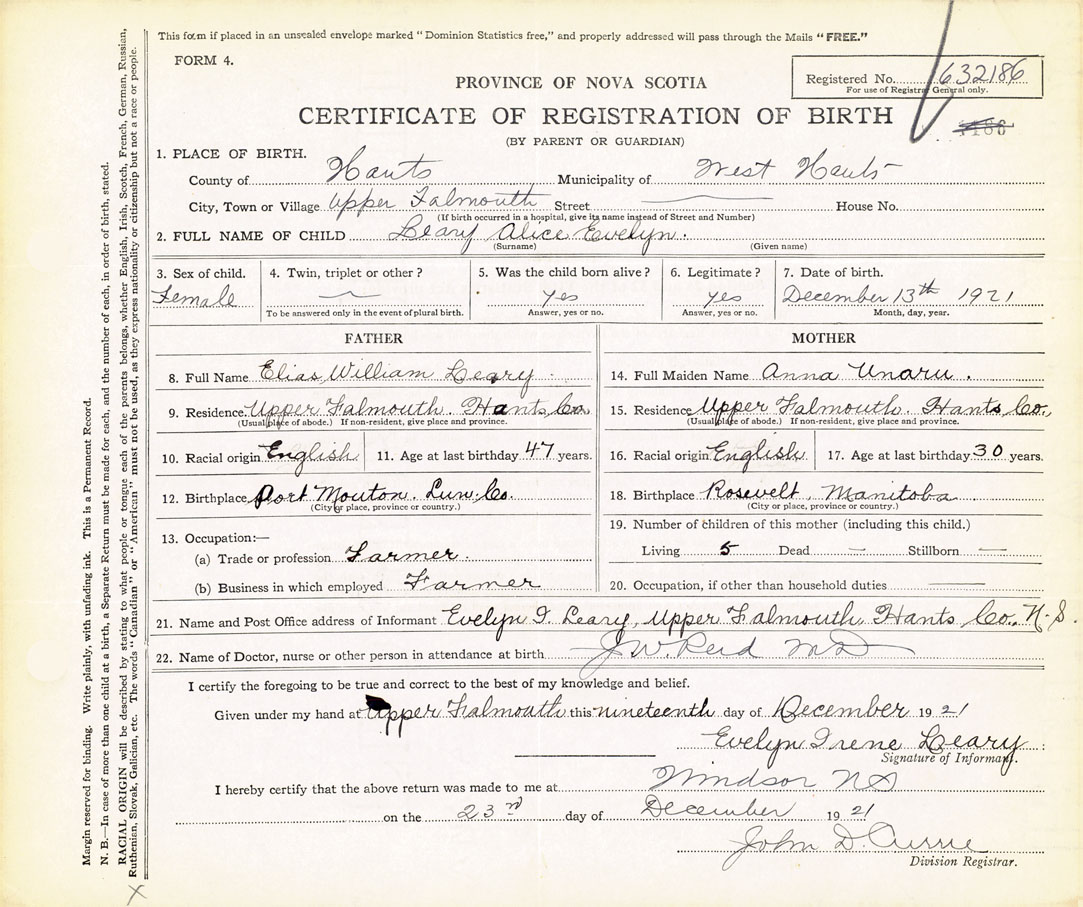 This form if placed in an unsealed envelope marked "Dominion Statistics free," and properly addressed will pass through the Mails "FREE."
FORM 4.
Registered No. 632186
For use of Registrar General only.
PROVINCE OF NOVA SCOTIA
CERTIFICATE OF REGISTRATION OF BIRTH
(BY PARENT OR GUARDIAN)
1. PLACE OF BIRTH.
County of Hants Municipality of West Hants
City, Town or Village Upper Falmouth Street House No.
(If birth occurred in a hospital, give its name instead of Street and Number)
2. FULL NAME OF CHILD Leary Alice Evelyn.
(Surname) (Given name)
3. Sex of child. 4. Twin, triplet or other? 5. Was the child born alive? 6. Legitimate? 7. Date of birth.
Female — yes yes December 13th 1921
To be answered only in the event of plural birth. Answer, yes or no. Answer, yes or no. Month, day, year.
FATHER MOTHER
8. Full Name Elias William Leary 14. Full Maiden Name Anna Unaru.
9. Residence Upper Falmouth. Hants Co. 15. Residence Upper Falmouth. Hants Co.,
(Usual place of abode.) If non-resident, give place and province. (Usual place of abode.) If non-resident, give place and province.
10. Racial origin English 11. Age at last birthday 47 years. 16. Racial origin English 17. Age at last birthday 30 years.
12. Birthplace Port Mouton. Lun. Co. 18. Birthplace Rosevelt, Manitoba
(City or place, province or country.) (City or place, province or country.)
13. Occupation:— 19. Number of children of this mother (including this child.)
(a) Trade or profession Farmer. Living 5 Dead — Stillborn —
(b) Business in which employed Farmer 20. Occupation, if other than household duties —
21. Name and Post Office address of Informant Evelyn I. Leary, Upper Falmouth, Hants Co., N.S.
22. Name of Doctor, nurse or other person in attendance at birth J W. Reid MD
I certify the foregoing to be true and correct to the best of my knowledge and belief.
Given under my hand at Upper Falmouth this nineteenth day of December 1921
Evelyn Irene Leary
Signature of Informant.
I hereby certify that the above return was made to me at Windsor NS
on the 23rd day of December 1921
John D. Currie
Division Registrar.
Margin reserved for binding. Write plainly, with unfading ink. This is a Permanent Record.
N. B.—In case of more than one child at a birth, a Separate Return must be made for each, and the number of each, in order of birth, stated.
RACIAL ORIGIN will be described by stating to what people or tongue each of the parents belongs, whether English, Irish, Scotch, French, German, Russian,
Ruthenian, Slovak, Galician, etc. The words "Canadian" or "American" must not be used, as they express nationality or citizenship but not a race or people.
X